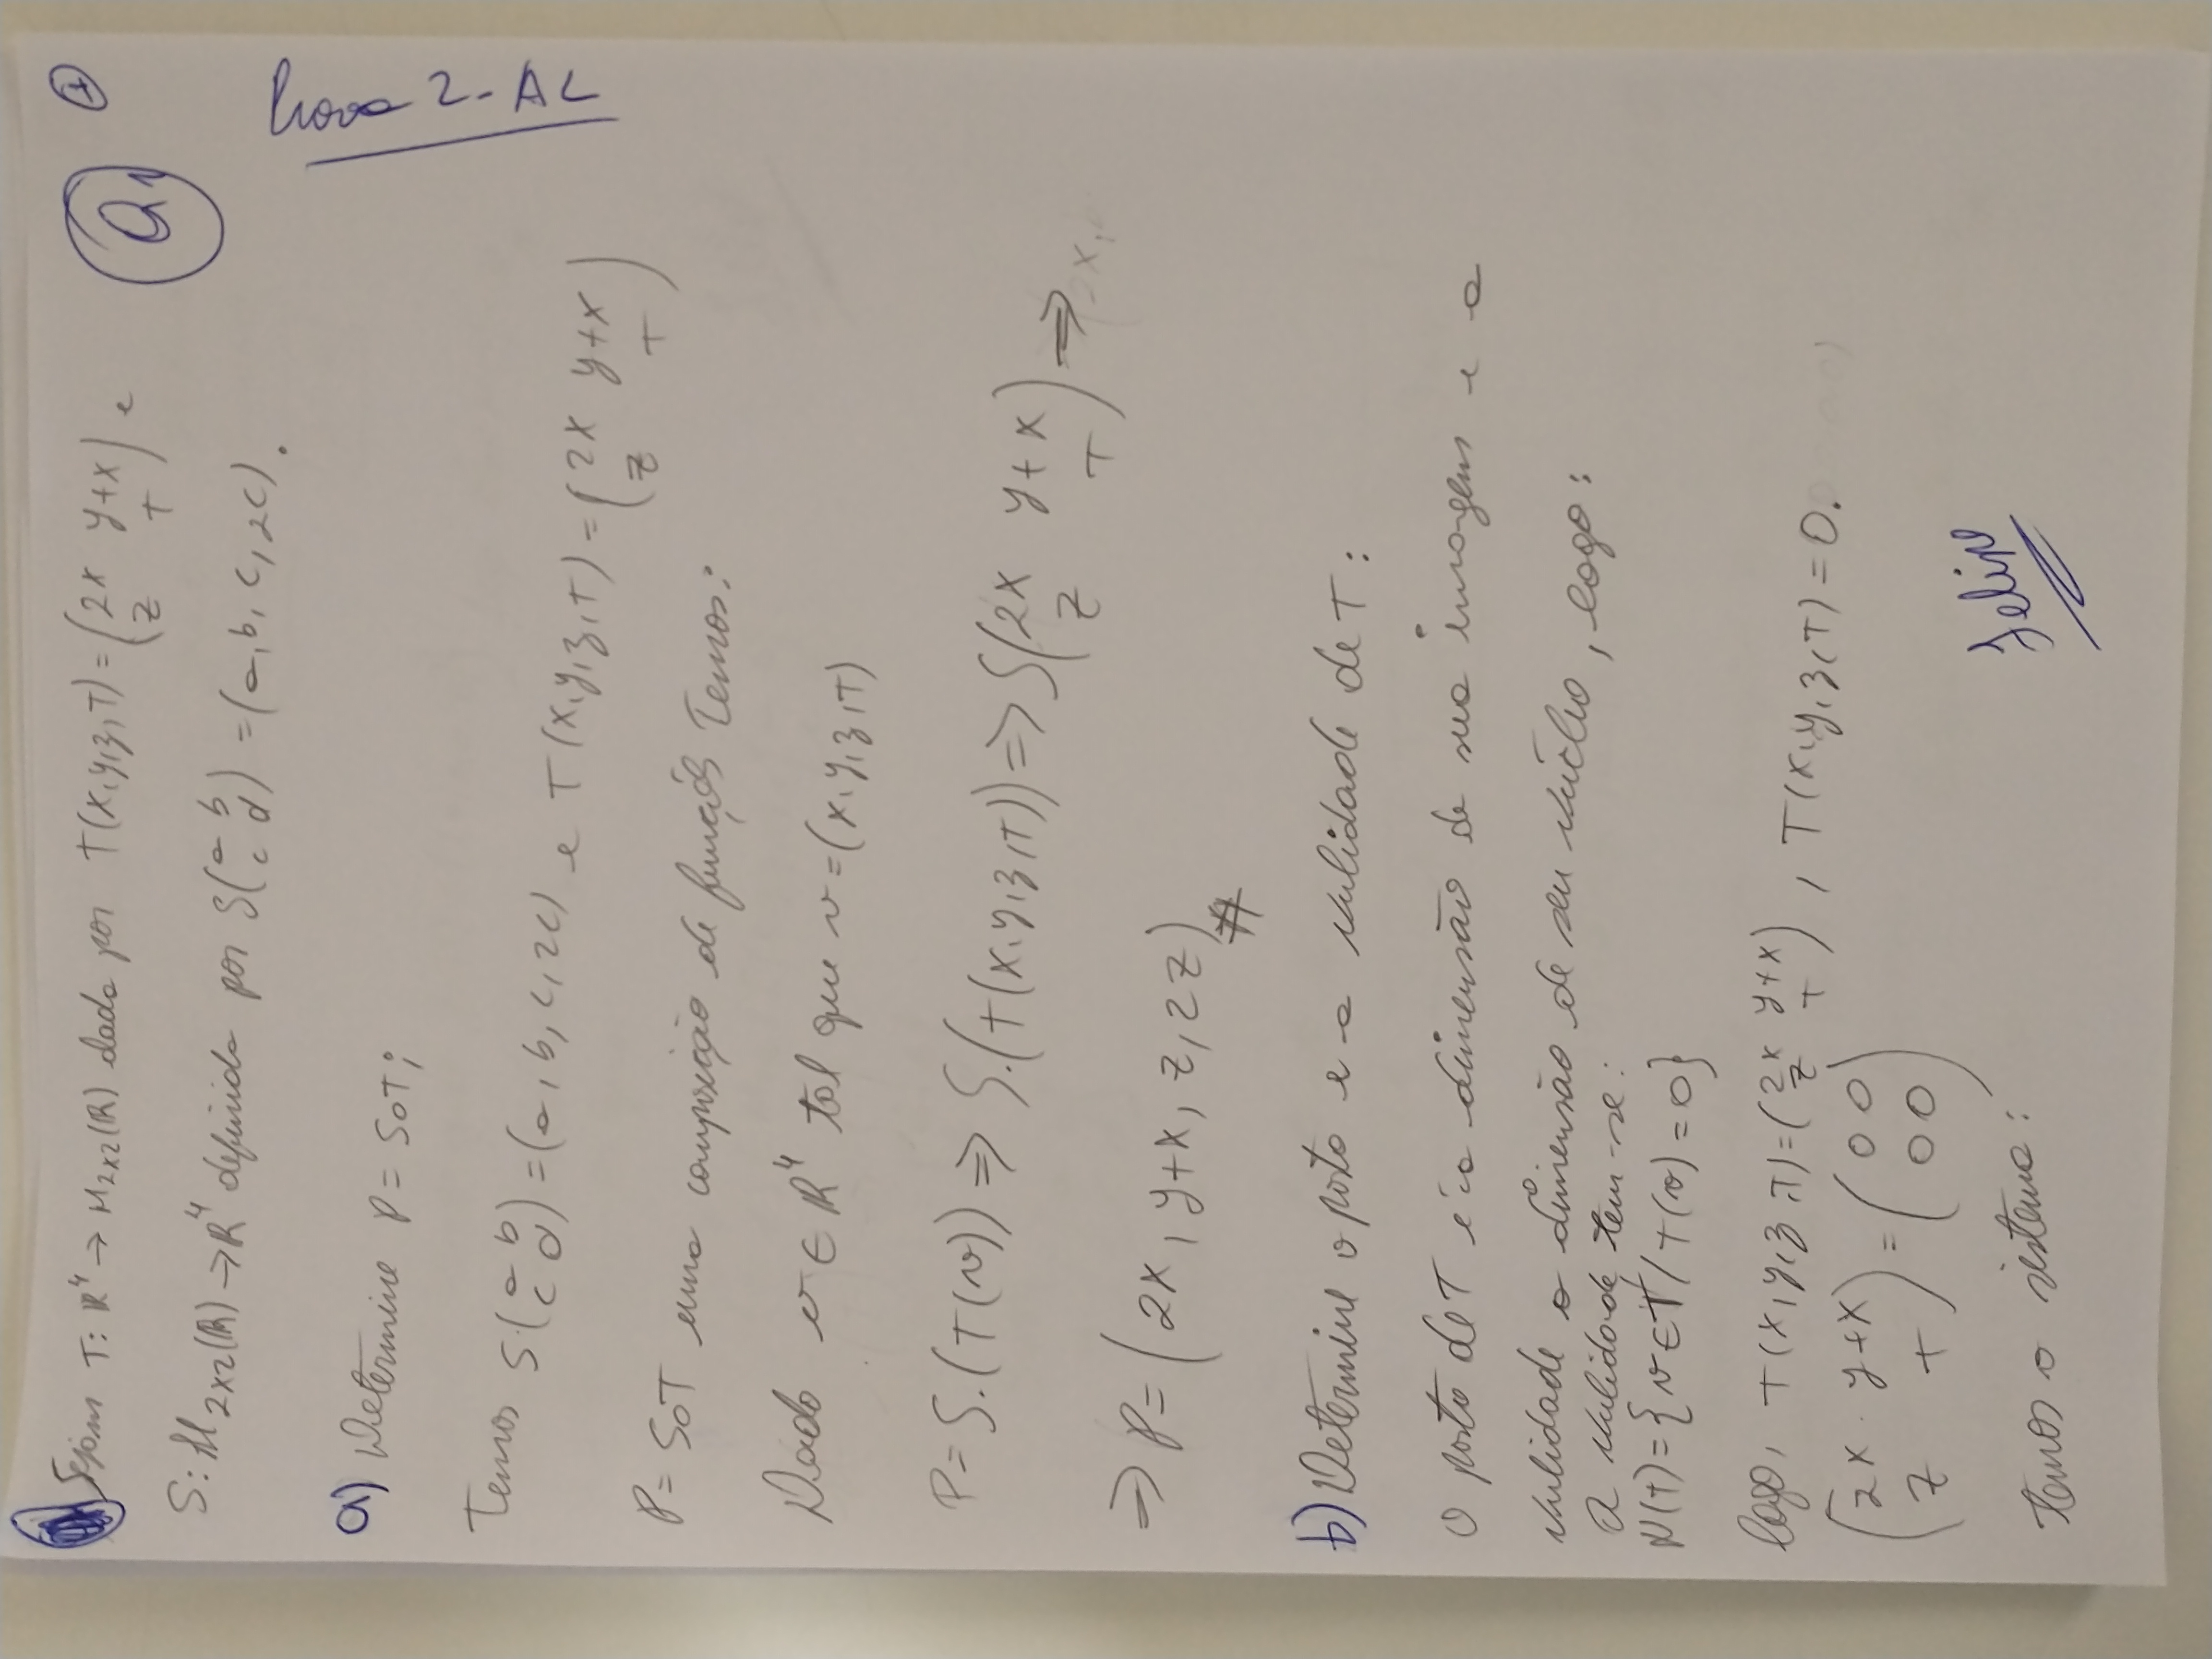 Sejam T: ℝ⁴ → M₂ₓ₂(ℝ) dada por T(x,y,z,T) = (2x y+x
z T) e
Q1
S: M₂ₓ₂(ℝ) → ℝ⁴ definida por S(a b
c d) = (a, b, c, 2c).
Prova 2 - AL
a) Determine P = SoT;
Temos S.(a b
c d) = (a, b, c, 2c) e T(x,y,z,T) = (2x y+x
z T)
P = SoT uma composição de funções temos:
Dado v ∈ ℝ⁴ tal que v = (x,y,z,T)
P = S.(T(v)) ⇒ S.(T(x,y,z,T)) ⇒ S(2x y+x
z T) ⇒
⇒ P = (2x, y+x, z, 2z) #
b) Determine o posto e a nulidade de T:
O posto de T é a dimensão de sua imagem e a
nulidade a dimensão de seu núcleo, logo:
A nulidade, tem-se:
N(T) = {v ∈ T / T(v) = 0}
logo, T(x,y,z,T) = (2x y+x
z T), T(x,y,z,T) = 0.
(2x y+x
z T) = (0 0
0 0)
temos o sistema:
Felipe